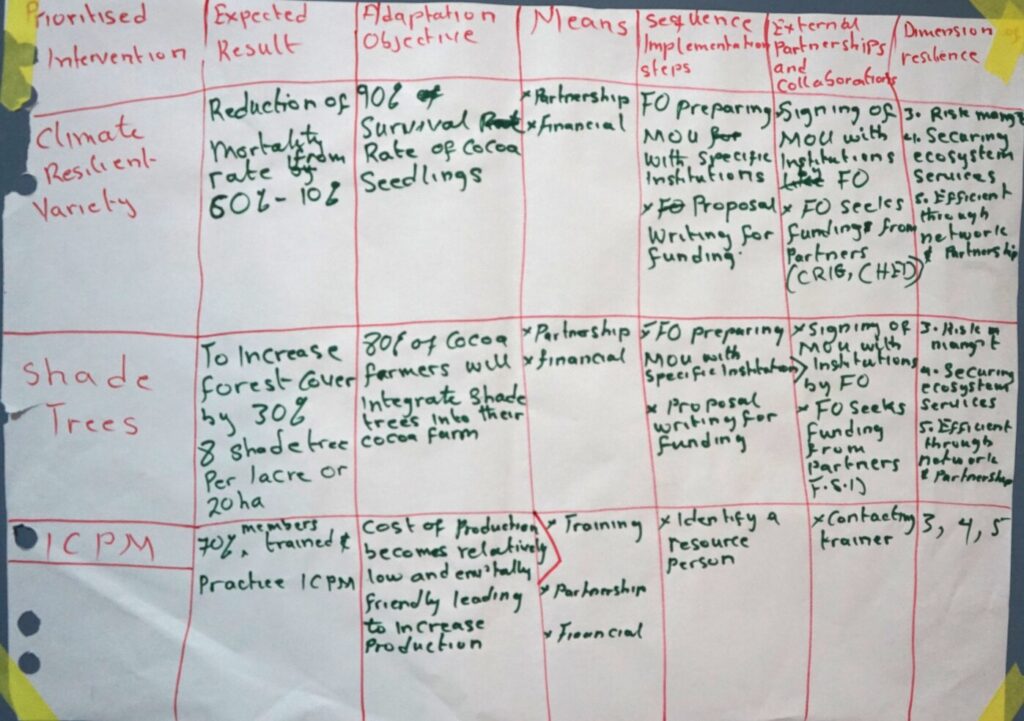 Prioritised
Intervention
Expected
Result
Adaptation
Objective
Means
Sequence
Implementation
steps
External
Partnerships
and
Collaborations
Dimension of
resilience
Climate
Resilient-
Variety
Reduction of
Mortality
rate from
60% - 10%
90% of
Survival
Rate of Cocoa
Seedlings
x Partnership
x financial
FO preparing
MOU for
with Specific
Institutions
x FO Proposal
Writing for
funding.
Signing of
MOU with
Institutions
FO
x FO seeks
fundings from
Partners
(CRIG, CHED)
3. Risk mangt
4. Securing
ecosystem
Services
5. Efficient
through
network
& Partnership
Shade
Trees
To Increase
forest cover
by 30%
8 shade tree
Per 1acre or
20 ha
80% of Cocoa
farmers will
Integrate Shade
trees into their
cocoa farm
x Partnership
x financial
FO preparing
MOU with
specific Institution
x Proposal
writing for
funding
x Signing of
MOU with
Institutions
by FO
x FO Seeks
funding
from
partners
3. Risk
mangt
4. Securing
ecosystem
services
5. Efficient
through
network
& Partnership
ICPM
70% members trained &
Practice ICPM
Cost of Production
becomes relatively
low and env'tally
friendly leading
to Increase
Production
x Training
x Partnership
x Financial
x Identify a
resource
person
x Contacting
trainer
3, 4, 5